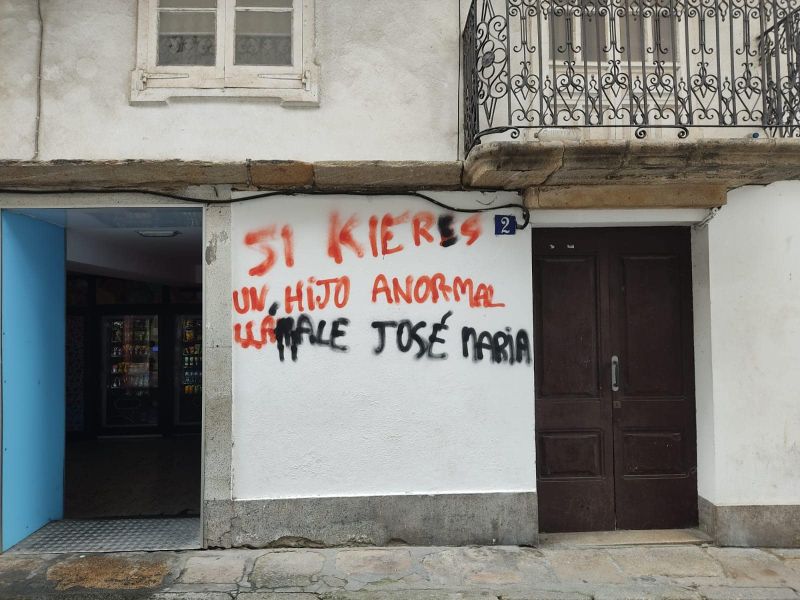 SI KIERES
UN HIJO ANORMAL
LLÁMALE JOSÉ MARIA
2